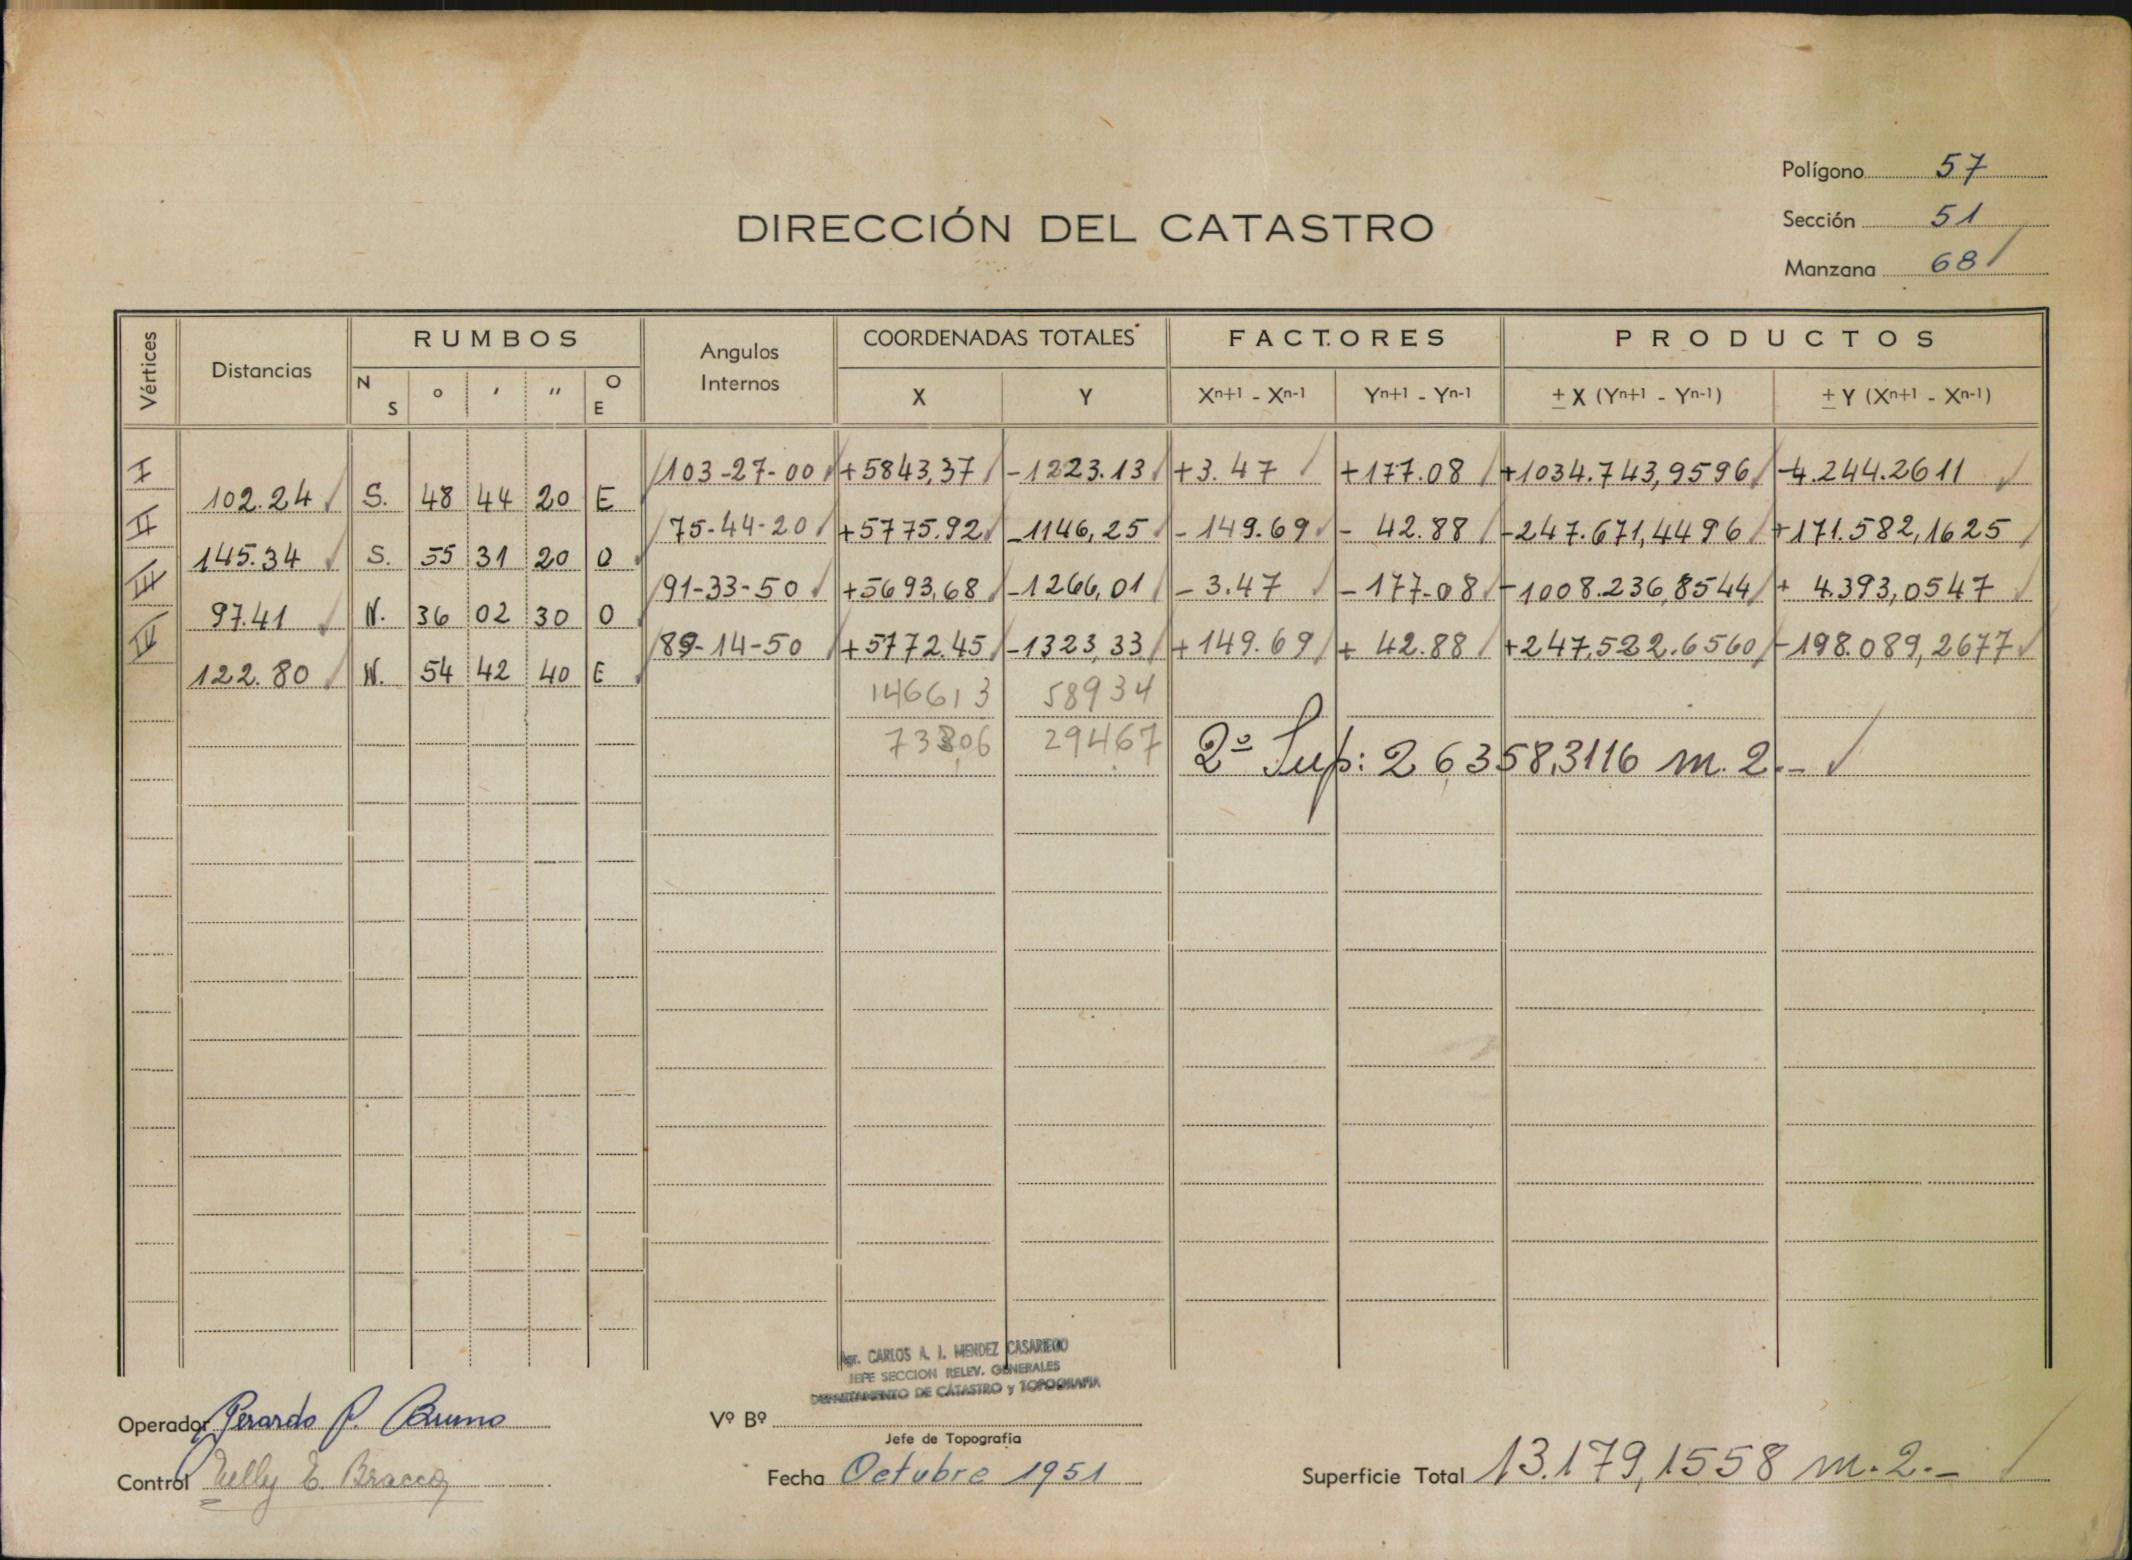 Polígono 57
DIRECCIÓN DEL CATASTRO
Sección 51
Manzana 68
Vértices Distancias RUMBOS Angulos Internos COORDENADAS TOTALES FACTORES PRODUCTOS
N S ° ' " O E X Y Xⁿ⁺¹ - Xⁿ⁻¹ Yⁿ⁺¹ - Yⁿ⁻¹ ± X (Yⁿ⁺¹ - Yⁿ⁻¹) ± Y (Xⁿ⁺¹ - Xⁿ⁻¹)
I 103-27-00 +5843,37 -1223.13 +3.47 +177.08 +1034.743,9596 -4.244.2611
102.24 S. 48 44 20 E
II 75-44-20 +5775.92 -1146,25 -149.69 - 42.88 -247.671,4496 +171.582,1625
145.34 S. 55 31 20 O
III 91-33-50 +5693,68 -1266,01 -3.47 -177.08 -1008.236,8544 + 4.393,0547
97.41 N. 36 02 30 O
IV 89-14-50 +5772.45 -1323,33 +149.69 + 42.88 +247.522.6560 -198.089,2677
122.80 N. 54 42 40 E
146613 58934
73306 29467
2º Sup: 26,358,3116 m.2.-
Agr. CARLOS A. J. MENDEZ CASARIEGO
JEFE SECCION RELEV. GENERALES
DEPARTAMENTO DE CATASTRO y TOPOGRAFIA
Operador Perardo P. Bruno
Vº Bº
Jefe de Topografía
Control Nelly E. Bracco
Fecha Octubre 1951
Superficie Total 13.179,1558 m.2.-